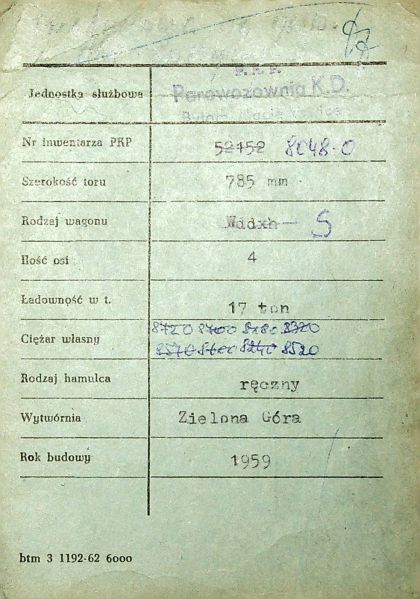 P.K.P.
Jednostka służbowa Parowozownia K.D.
Bytom
Nr inwentarza PKP 52152 8048-0
Szerokość toru 785 mm
Rodzaj wagonu Wddxh - S
Ilość osi 4
Ładowność w t. 17 ton
8720 8700 8280 8320
Ciężar własny 8570 8600 8240 8520
Rodzaj hamulca ręczny
Wytwórnia Zielona Góra
Rok budowy 1959
btm 3 1192-62 6000